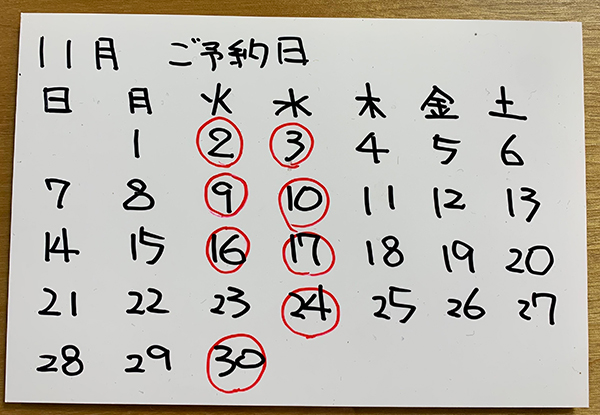 11月 ご予約日
日 月 火 水 木 金 土
1 2 3 4 5 6
7 8 9 10 11 12 13
14 15 16 17 18 19 20
21 22 23 24 25 26 27
28 29 30